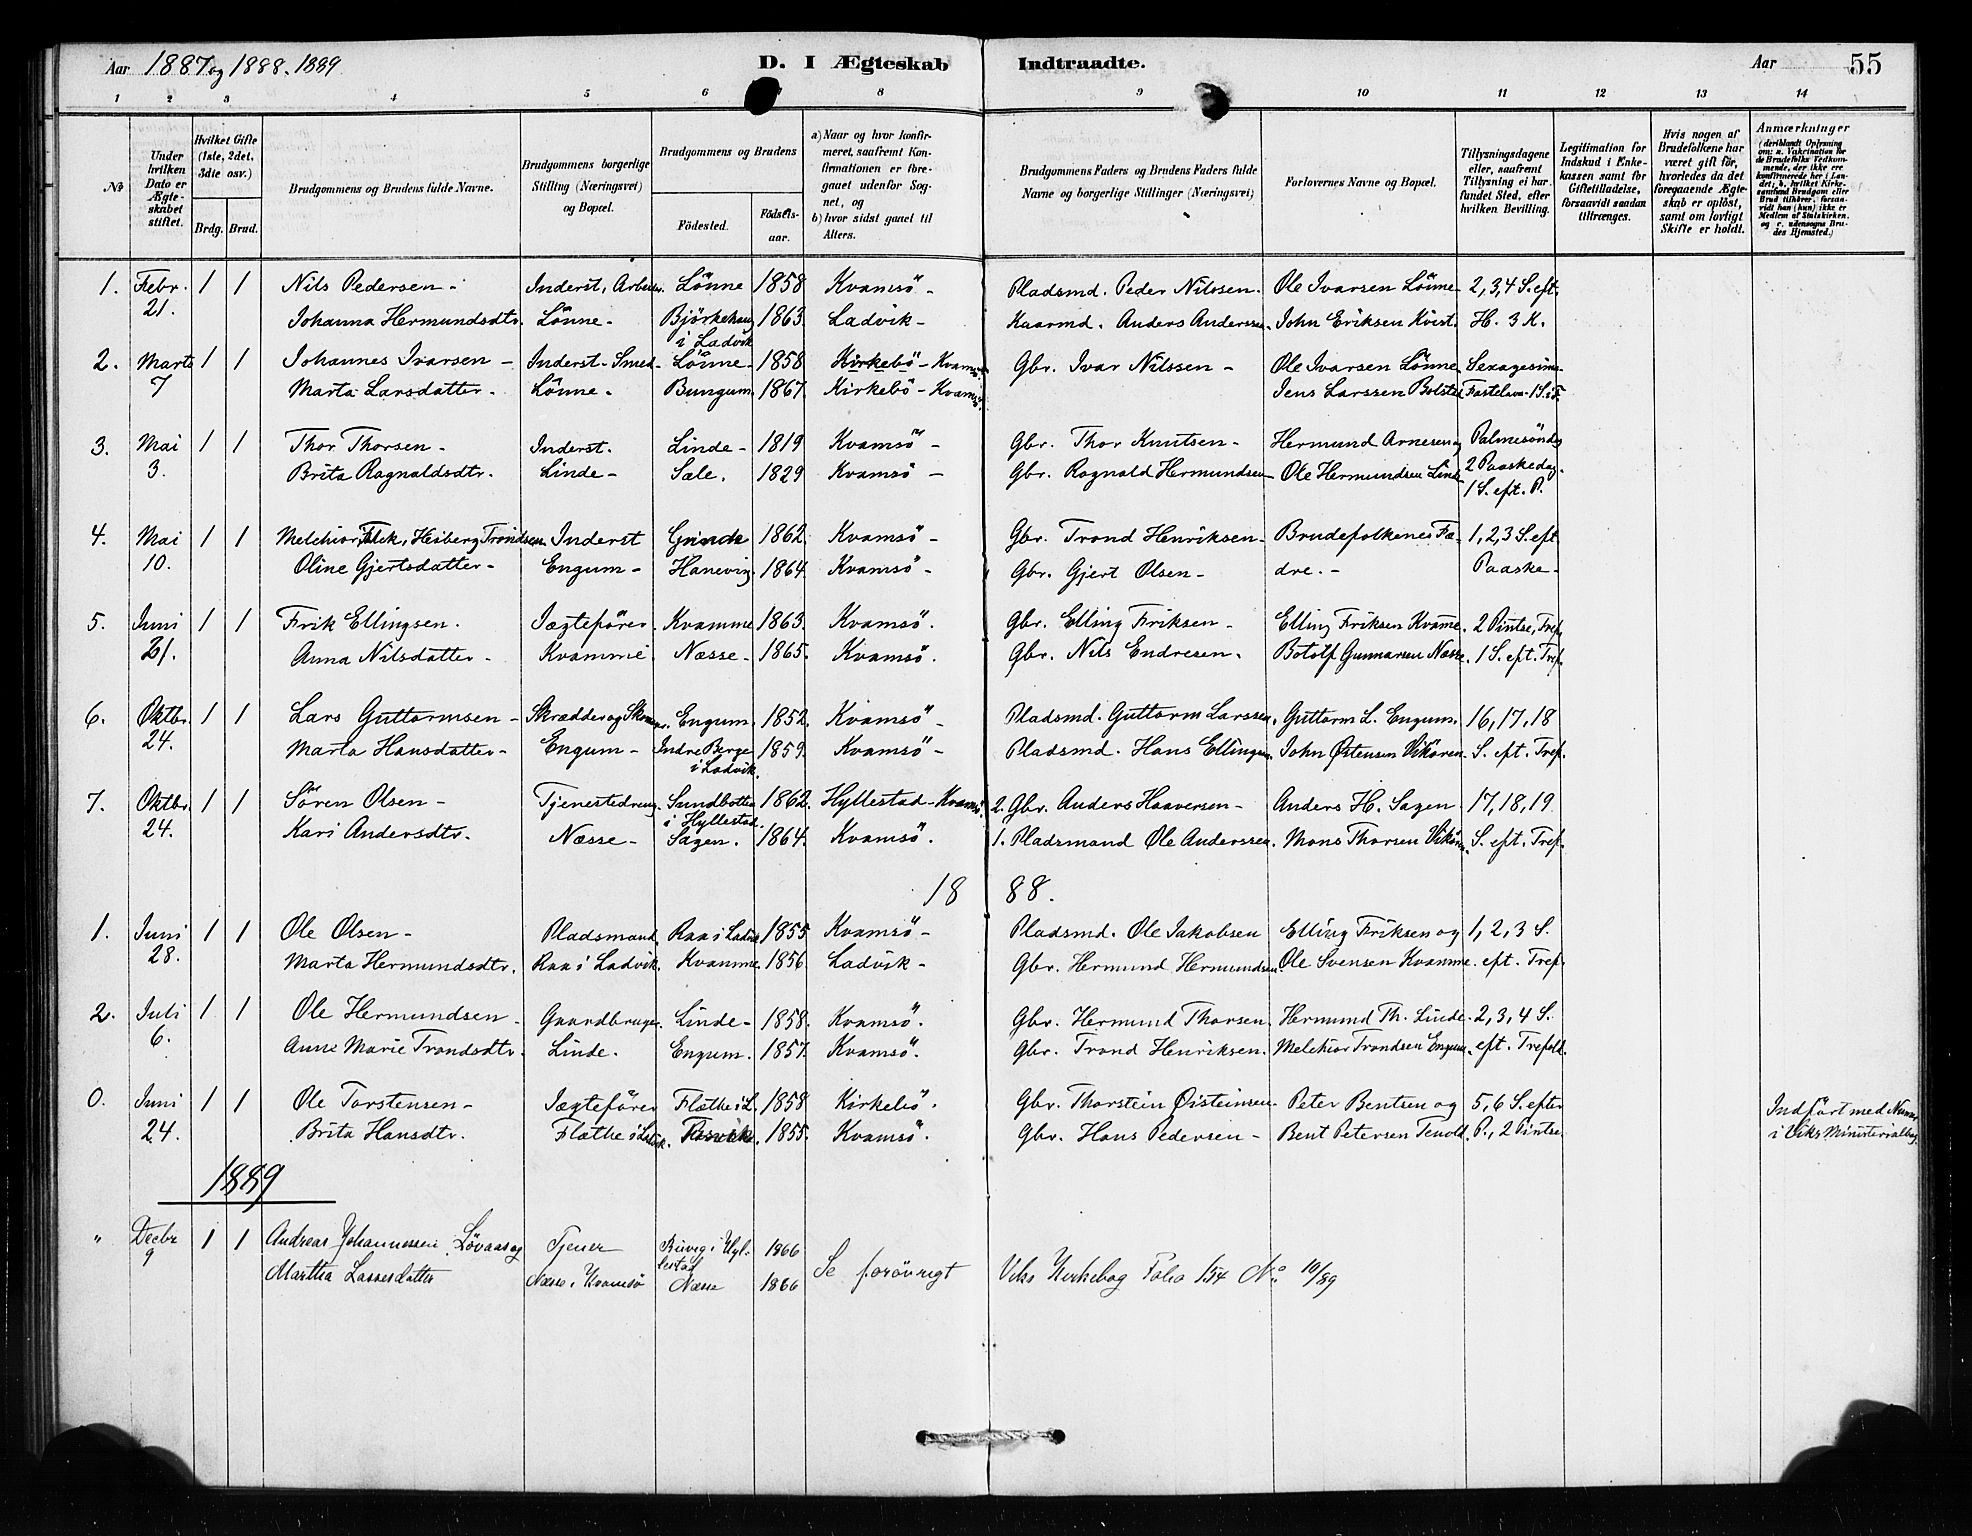 Aar 1887 og 1888. 1889 D. I Ægteskab Indtraadte. Aar 55
1 2 3 4 5 6 8 9 10 11 12 13 14
No
Under hvilken Dato er Ægteskabet stiftet.
Hvilket Gifte (1ste, 2det, 3die osv.)
Brdg. Brud.
Brudgommens og Brudens fulde Navne.
Brudgommens borgerlige Stilling (Næringsvei) og Bopæl.
Brudgommens og Brudens
Fødested. Fødselsaar.
a) Naar og hvor konfirmeret, saafremt Konfirmationen er foregaaet udenfor Sognet, og
b) hvor sidst gaaet til Alters.
Brudgommens Faders og Brudens Faders fulde Navne og borgerlige Stillinger (Næringsvei)
Forlovernes Navne og Bopæl.
Tillysningsdagene eller, saafremt Tillysning ei har fundet Sted, efter hvilken Bevilling.
Legitimation for Indskud i Enkekassen samt for Giftetilladelse, forsaavidt saadan tiltrænges.
Hvis nogen af Brudefolkene har været gift før, hvorledes da det foregaaende Ægteskab er opløst, samt om lovligt Skifte er holdt.
Anmærkninger (deriblandt Oplysning om: a. Vakcination for de Brudefolks Vedkommende, der ikke ere konfirmerede her i Landet; b. hvilket Kirkesamfund Brudgom eller Brud tilhører, forsaavidt han (hun) ikke er Medlem af Statskirken, og c. udensogns Brudes Hjemsted.)
1. Febr. 1 1 Nils Pedersen - Inderst, Arbeider. Lönne 1858 Kvamsö - Pladsmd. Peder Nilssen. Ole Ivarsen Lönne 2,3,4 S. eft.
21. Johanna Hermundsdtr. Lönne - Björkehaug i Ladvik 1863. Ladvik - Kaarmd. Anders Anderssen. John Eriksen Kvist. H. 3 K.
2. Marts 1 1 Johannes Ivarsen - Inderst - Smed - Lönne - 1858 Kirkebö - Kvamsö. Gbr. Ivar Nilssen - Ole Ivarsen Lönne. Sexagesima
7 Marta Larsdatter. Lönne. Bungum. 1867. Kirkebö - Kvamsö. Jens Larssen Bolstad Fastelavn - 1 S. i F.
3. Mai 1 1 Thor Thorsen - Inderst. Linde - 1819 Kvamsö - Gbr. Thor Knutsen - Hermund Arnesen og Palmesöndag
3. Brita Ragnaldsdtr. Linde - Sæle. 1829 Kvamsö - Gbr. Ragnald Hermundsen - Ole Hermundsen Linde 2 Paaskedag.
1 S. eft. P.
4. Mai 1 1 Melchior Falck, Heiberg Trondsen Inderst Grinde 1862. Kvamsö - Gbr. Trond Henriksen - Brudefolkenes Fæ- 1, 2, 3 S. eft
10. Oline Gjertsdatter - Engum - Hanevig 1864. Kvamsö - Gbr. Gjert Olsen - dre. - Paaske -
5. Juni 1 1 Erik Ellingsen. Jægtefører. Kvamme 1863. Kvamsö. Gbr. Elling Eriksen - Elling Eriksen Kvamme. 2 Pintse, Tref.
21. Anna Nilsdatter - Kvamme. Næsse - 1865. Kvamsö. Gbr. Nils Endresen. Botolf Gunnarsen Næsse. 1 S. eft. Tref.
6. Oktbr. 1 1 Lars Guttormsen - Skrædder og Skomr. Engum. 1852. Kvamsö - Pladsmd. Guttorm Larssen. Guttorm L. Engum. 16, 17, 18
24. Marta Hansdatter - Engum - Indre Berge i Ladvik. 1859. Kvamsö - Pladsmd. Hans Ellingsen. John Østensen Vikören. S. eft. Tref.
7. Oktbr. 1 1 Sören Olsen - Tjenestedreng. Sundbotten i Hyllestad. 1862. Hyllestad - Kvamsö. 2. Gbr. Anders Haaversen - Anders H. Sagen 17, 18, 19.
24. Kari Andersdtr. Næsse - Sagen. 1864. Kvamsö. 1. Pladsmand Ole Anderssen. Mons Thorsen Vikören. S. eft. Tref.
18 88.
1. Juni 1 1 Ole Olsen - Pladsmand. Raa i Ladvik 1855 Kvamsö - Pladsmd. Ole Jakobsen Elling Eriksen og 1, 2, 3 S.
28. Marta Hermundsdtr. Raa i Ladvik. Kvamme. 1856. Ladvik - Gbr. Hermund Hermundsen. Ole Svensen Kvamme. eft. Tref.
2. Juli 1 1 Ole Hermundsen - Gaardbruger. Linde - 1858. Kvamsö. Gbr. Hermund Thorsen. Hermund Th. Linde. 2, 3, 4 S.
6. Anne Marie Trondsdtr. Linde. Engum. 1857. Kvamsö. Gbr. Trond Henriksen. Melchior Trondsen Engum. eft. Trefold.
0. Juni 1 1 Ole Torstensen - Jægtefører Flæthe i L. 1858. Kirkebö. Gbr. Thorstein Øisteinsen. Peter Bentsen og 5, 6 S. efter Indfört med Nummer
24. Brita Hansdtr. Flæthe i Ladvik. 1855. Kvamsö. Gbr. Hans Pedersen - Bent Petersen Tenold. P., 2 Pintse i Viks Ministerialbog.
1889
" Decbr 1 1 Andreas Johannessen Lövaas og Tjener i Hyllestad 1866
9 Martha Lassesdatter Næsse i Kvamsö Næsse 1866 Se forövrigt Viks Kirkebog Folio 154 No 10/89